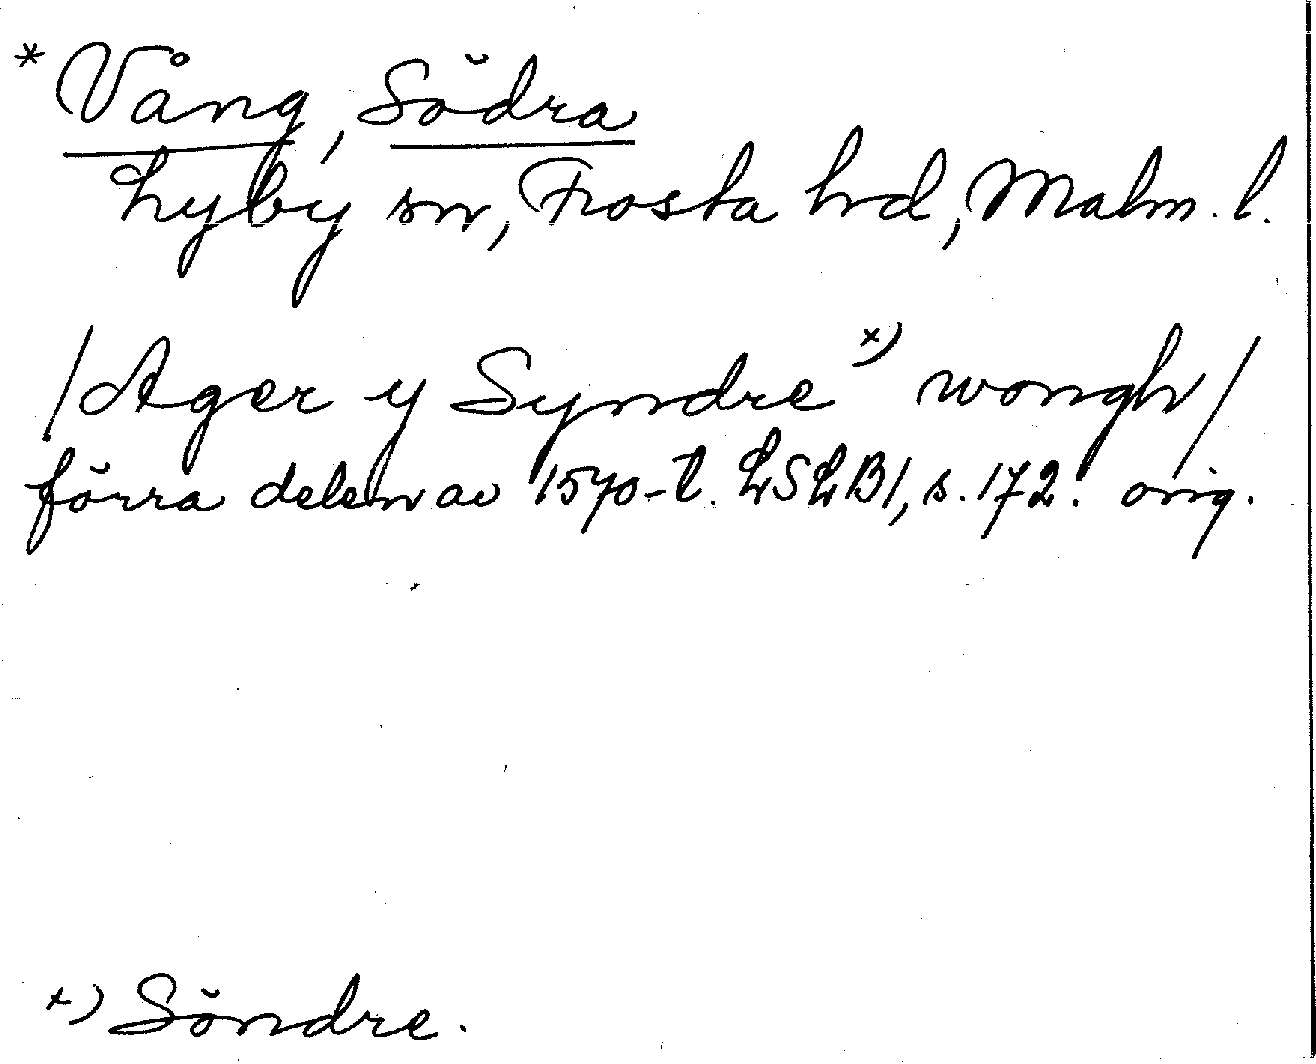 * Vång, Södra
Lyby sn, Frosta hd, Malm. l.
/Ager y Syndre x) wongh/
förra delen av 1570-t. LSLB1, s. 172. orig.
x) Söndre.